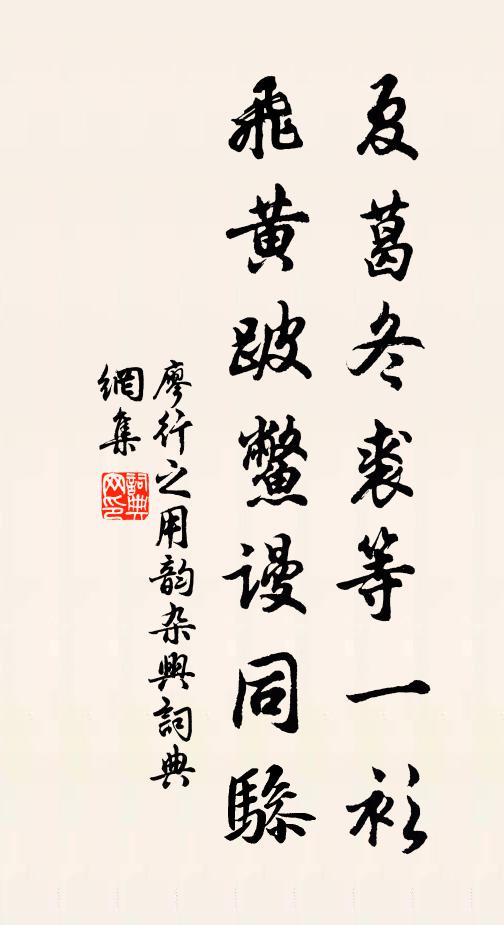 夏葛冬裘等一衫
飛黃跛鱉謾同驂
廖行之用韵杂興詞典
網集
詞典網印